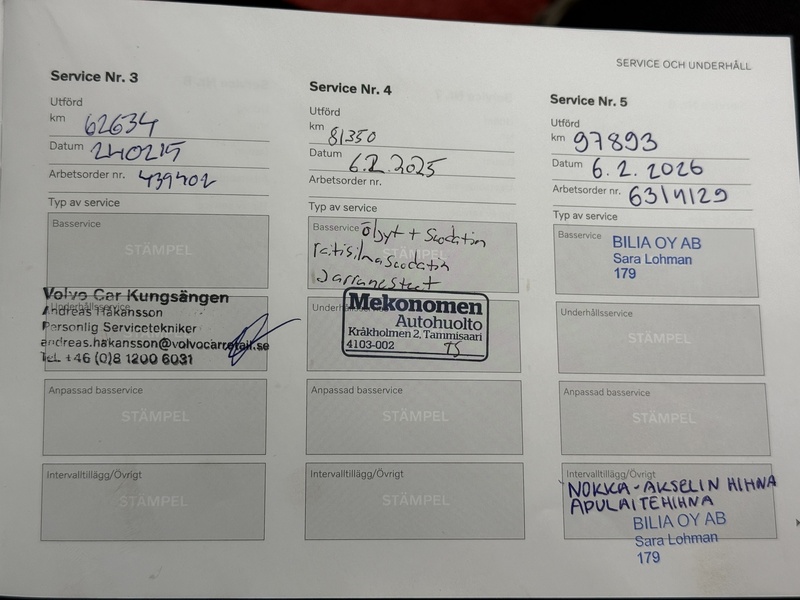 SERVICE OCH UNDERHÅLL
Service Nr. 3
Utförd
km 62634
Datum 240215
Arbetsorder nr. 439402
Typ av service
Basservice
STÄMPEL
Volvo Car Kungsängen
Underhållsservice
Andreas Håkansson
Personlig Servicetekniker
andreas.hakansson@volvocarretail.se
Tel. +46 (0)8 1200 6031
Anpassad basservice
STÄMPEL
Intervalltillägg/Övrigt
STÄMPEL
Service Nr. 4
Utförd
km 81350
Datum 6.2.2025
Arbetsorder nr.
Typ av service
Basservice Öljyt + Suodatin
raitisilmasuodatin
Jarrunesteet
Mekonomen
Autohuolto
Kråkholmen 2, Tammisaari
4103-002 TS
Anpassad basservice
STÄMPEL
Intervalltillägg/Övrigt
STÄMPEL
Service Nr. 5
Utförd
km 97893
Datum 6.2.2026
Arbetsorder nr.
Typ av service
Basservice
BILIA OY AB
Sara Lohman
179
Underhållsservice
STÄMPEL
Anpassad basservice
STÄMPEL
Intervalltillägg/Övrigt
NOKKA-AKSELIN HIHNA
APULAITEHIHNA
BILIA OY AB
Sara Lohman
179